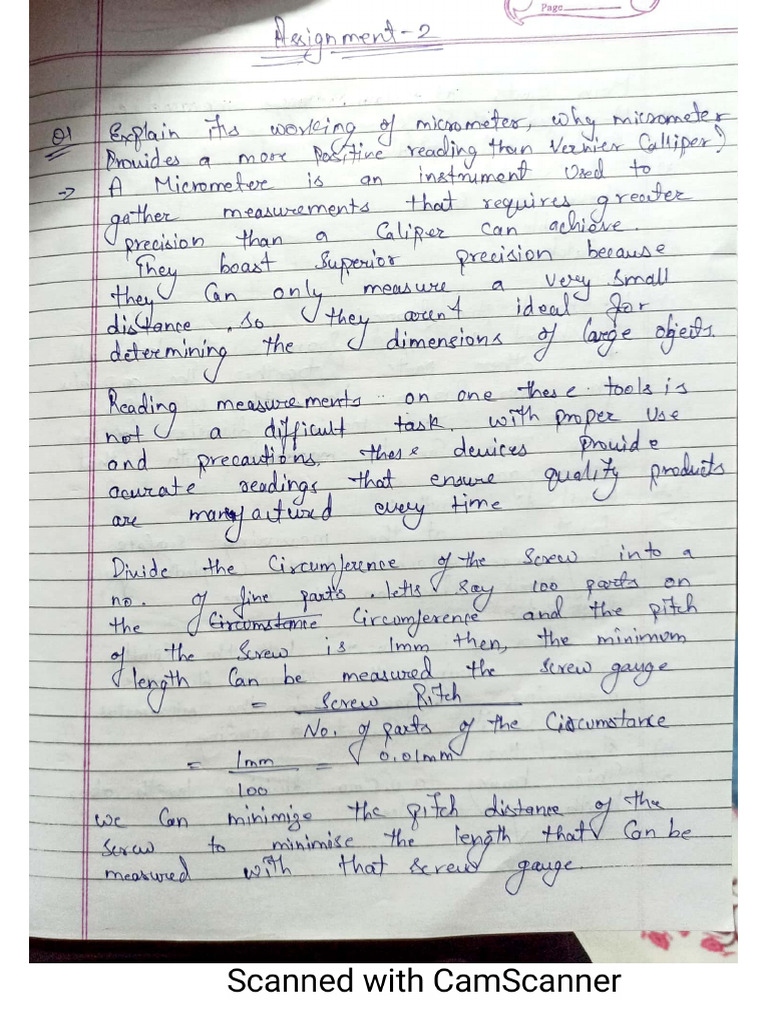 Page
Assignment-2
Q1 Explain its working of micrometer, why micrometer
Provides a more Positive reading than Vernier Calliper?
→ A Micrometer is an instrument Used to
gather measurements that requires greater
precision than a Caliper can achieve.
They boast Superior precision because
they Can only measure a very small
distance, so they aren't ideal for
determining the dimensions of large objects.
Reading measurements on one these tools is
not a difficult task. with proper use
and precautions, these devices provide
acurate readings that ensure quality products
are manufactured every time
Divide the Circumference of the screw into a
no. of fine parts. let's say 100 parts on
the Circumstance Circumference and the pitch
of the Screw is 1mm then, the minimum
length Can be measured the screw gauge
= Screw Pitch
No. of parts of the Circumstance
= 1mm = 0.01mm
100
We Can minimize the pitch distance of the
screw to minimise the length that Can be
measured with that screw gauge.
Scanned with CamScanner